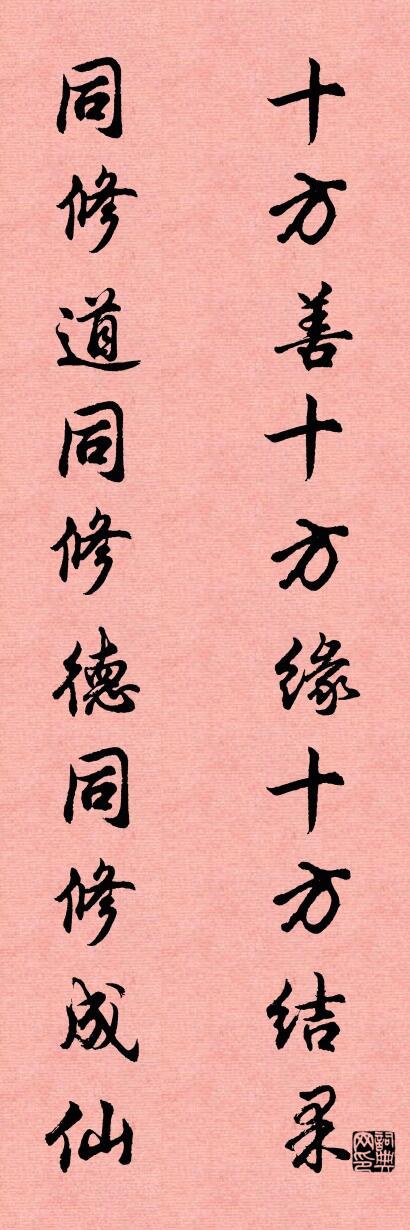 十方善十方缘十方结果
同修道同修德同修成仙
詞典网印